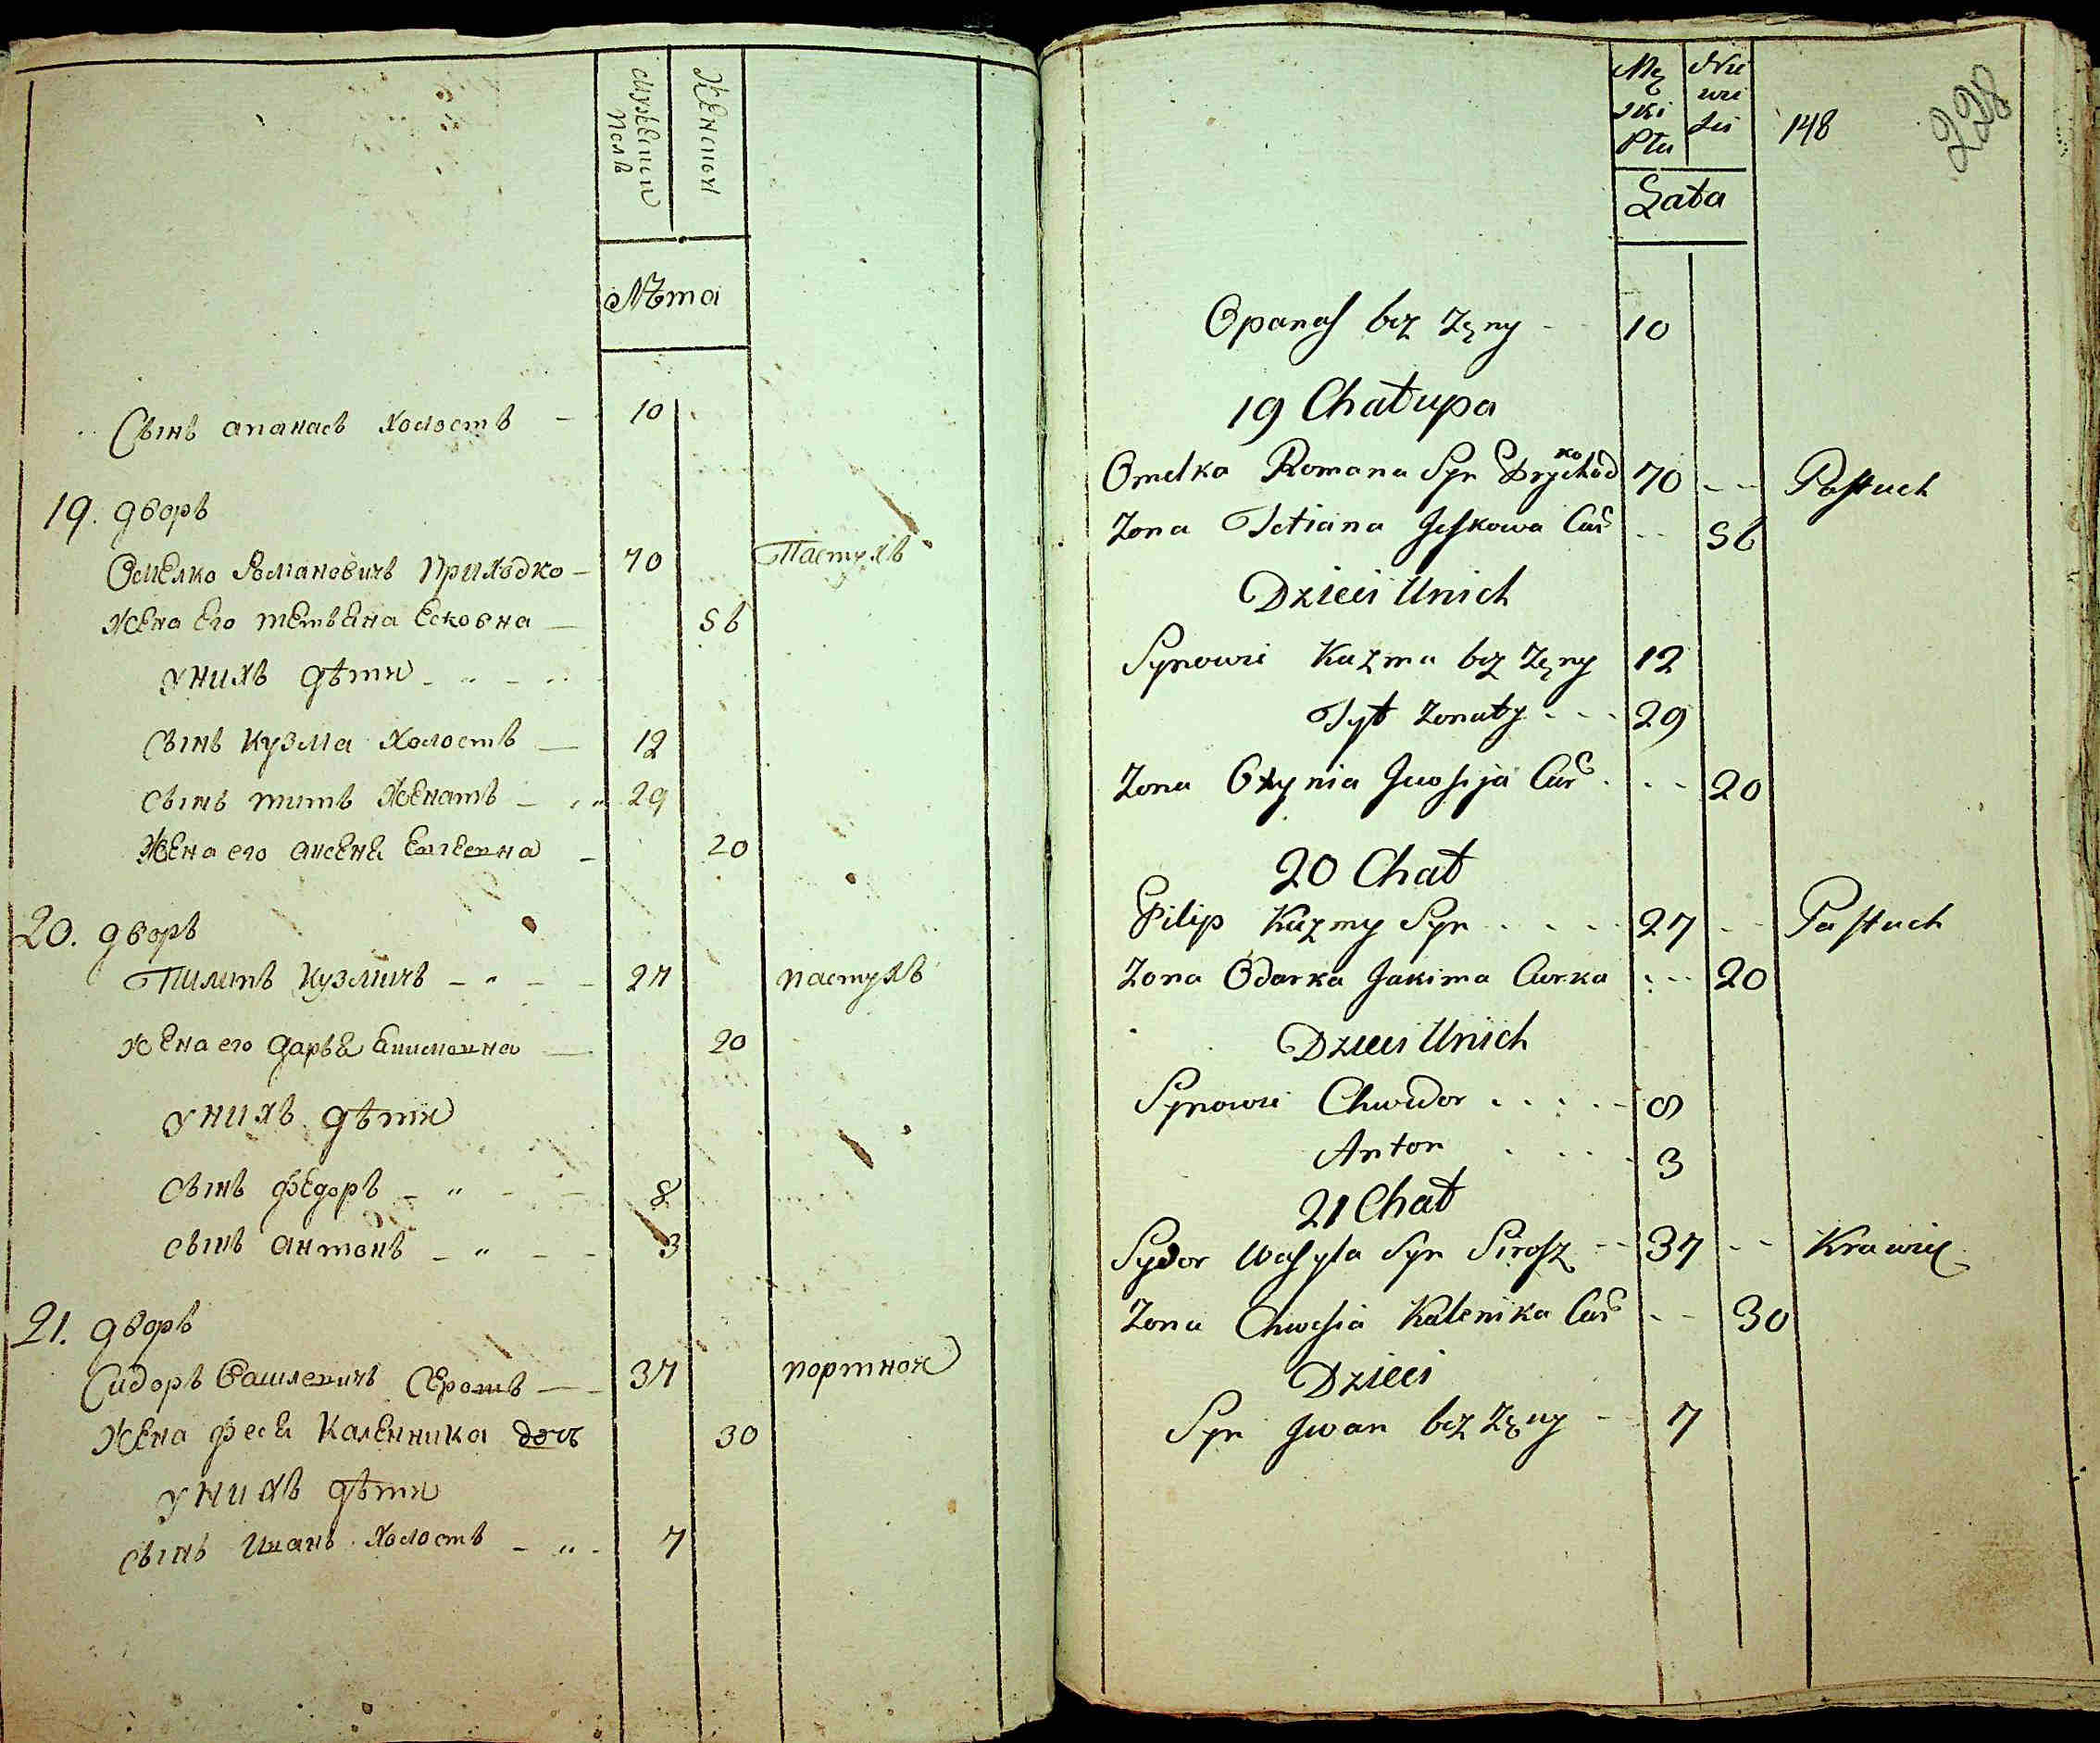 Мужескии Полъ
Женской
Лѣта
Сынъ апанасъ холостъ – 10
19. дворъ
Омелко Романовичъ Приходко – 70 Пастухъ
жена его тетьяна Есковна – 56
унихъ дѣти
Сынъ кузма холостъ – 12
сынъ титъ женатъ – 29
жена его 20
20. дворъ
Пилипъ Кузмичъ – 27 пастухъ
жена его дарья 20
унихъ дѣти
сынъ федоръ – 8
сынъ антонъ – 3
21. дворъ
Сидоръ 37 портной
жена Каленника дочъ 30
унихъ дѣти
сынъ Иванъ холостъ – 7
Mę
ski
Płu
Nie
wie
sci
148
228
Lata
Opanas bez żęny 10
19 Chałupa
Omelko Romana Syn Prychodko 70 Pastuch
Zona Tetiana Jeskowa Cur 56
Dzieci Unich
Synowie Kuzma bez żęny 12
Tyt żonaty 29
Zona Cur 20
20 Chał
Pilip Kuzmy Syn 27 Pastuch
Zona Odarka Jakima Curka 20
Dzieci Unich
Synowie Chwedor 8
Anton 3
21 Chał
Sydor Wasyla Syn 37 Krawiec
Zona Chwesia Kalenika Cur 30
Dzieci
Syn Jwan bez żęny 7